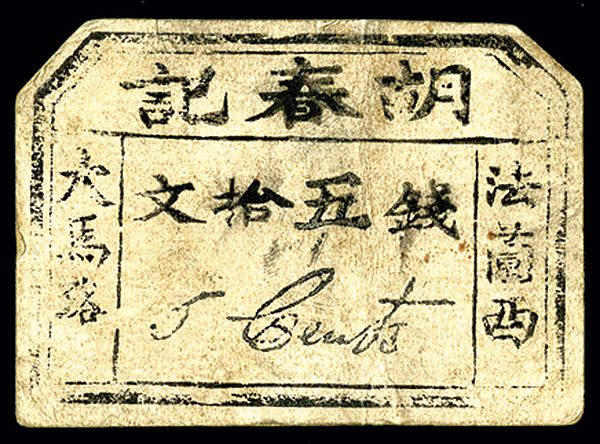 胡春記
法蘭西
大馬路
錢五拾文
5 Cents